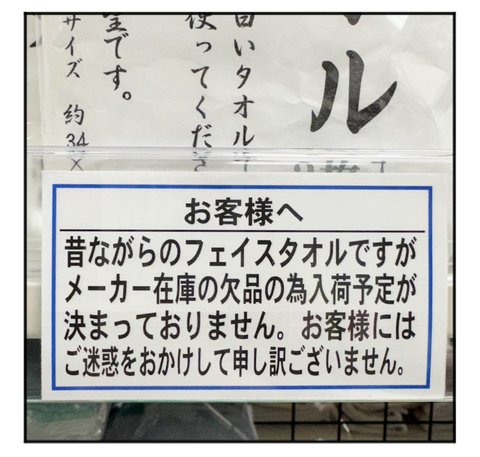 ル
白いタオルで
使ってくださ
です。
サイズ 約34×
お客様へ
昔ながらのフェイスタオルですが
メーカー在庫の欠品の為入荷予定が
決まっておりません。お客様には
ご迷惑をおかけして申し訳ございません。